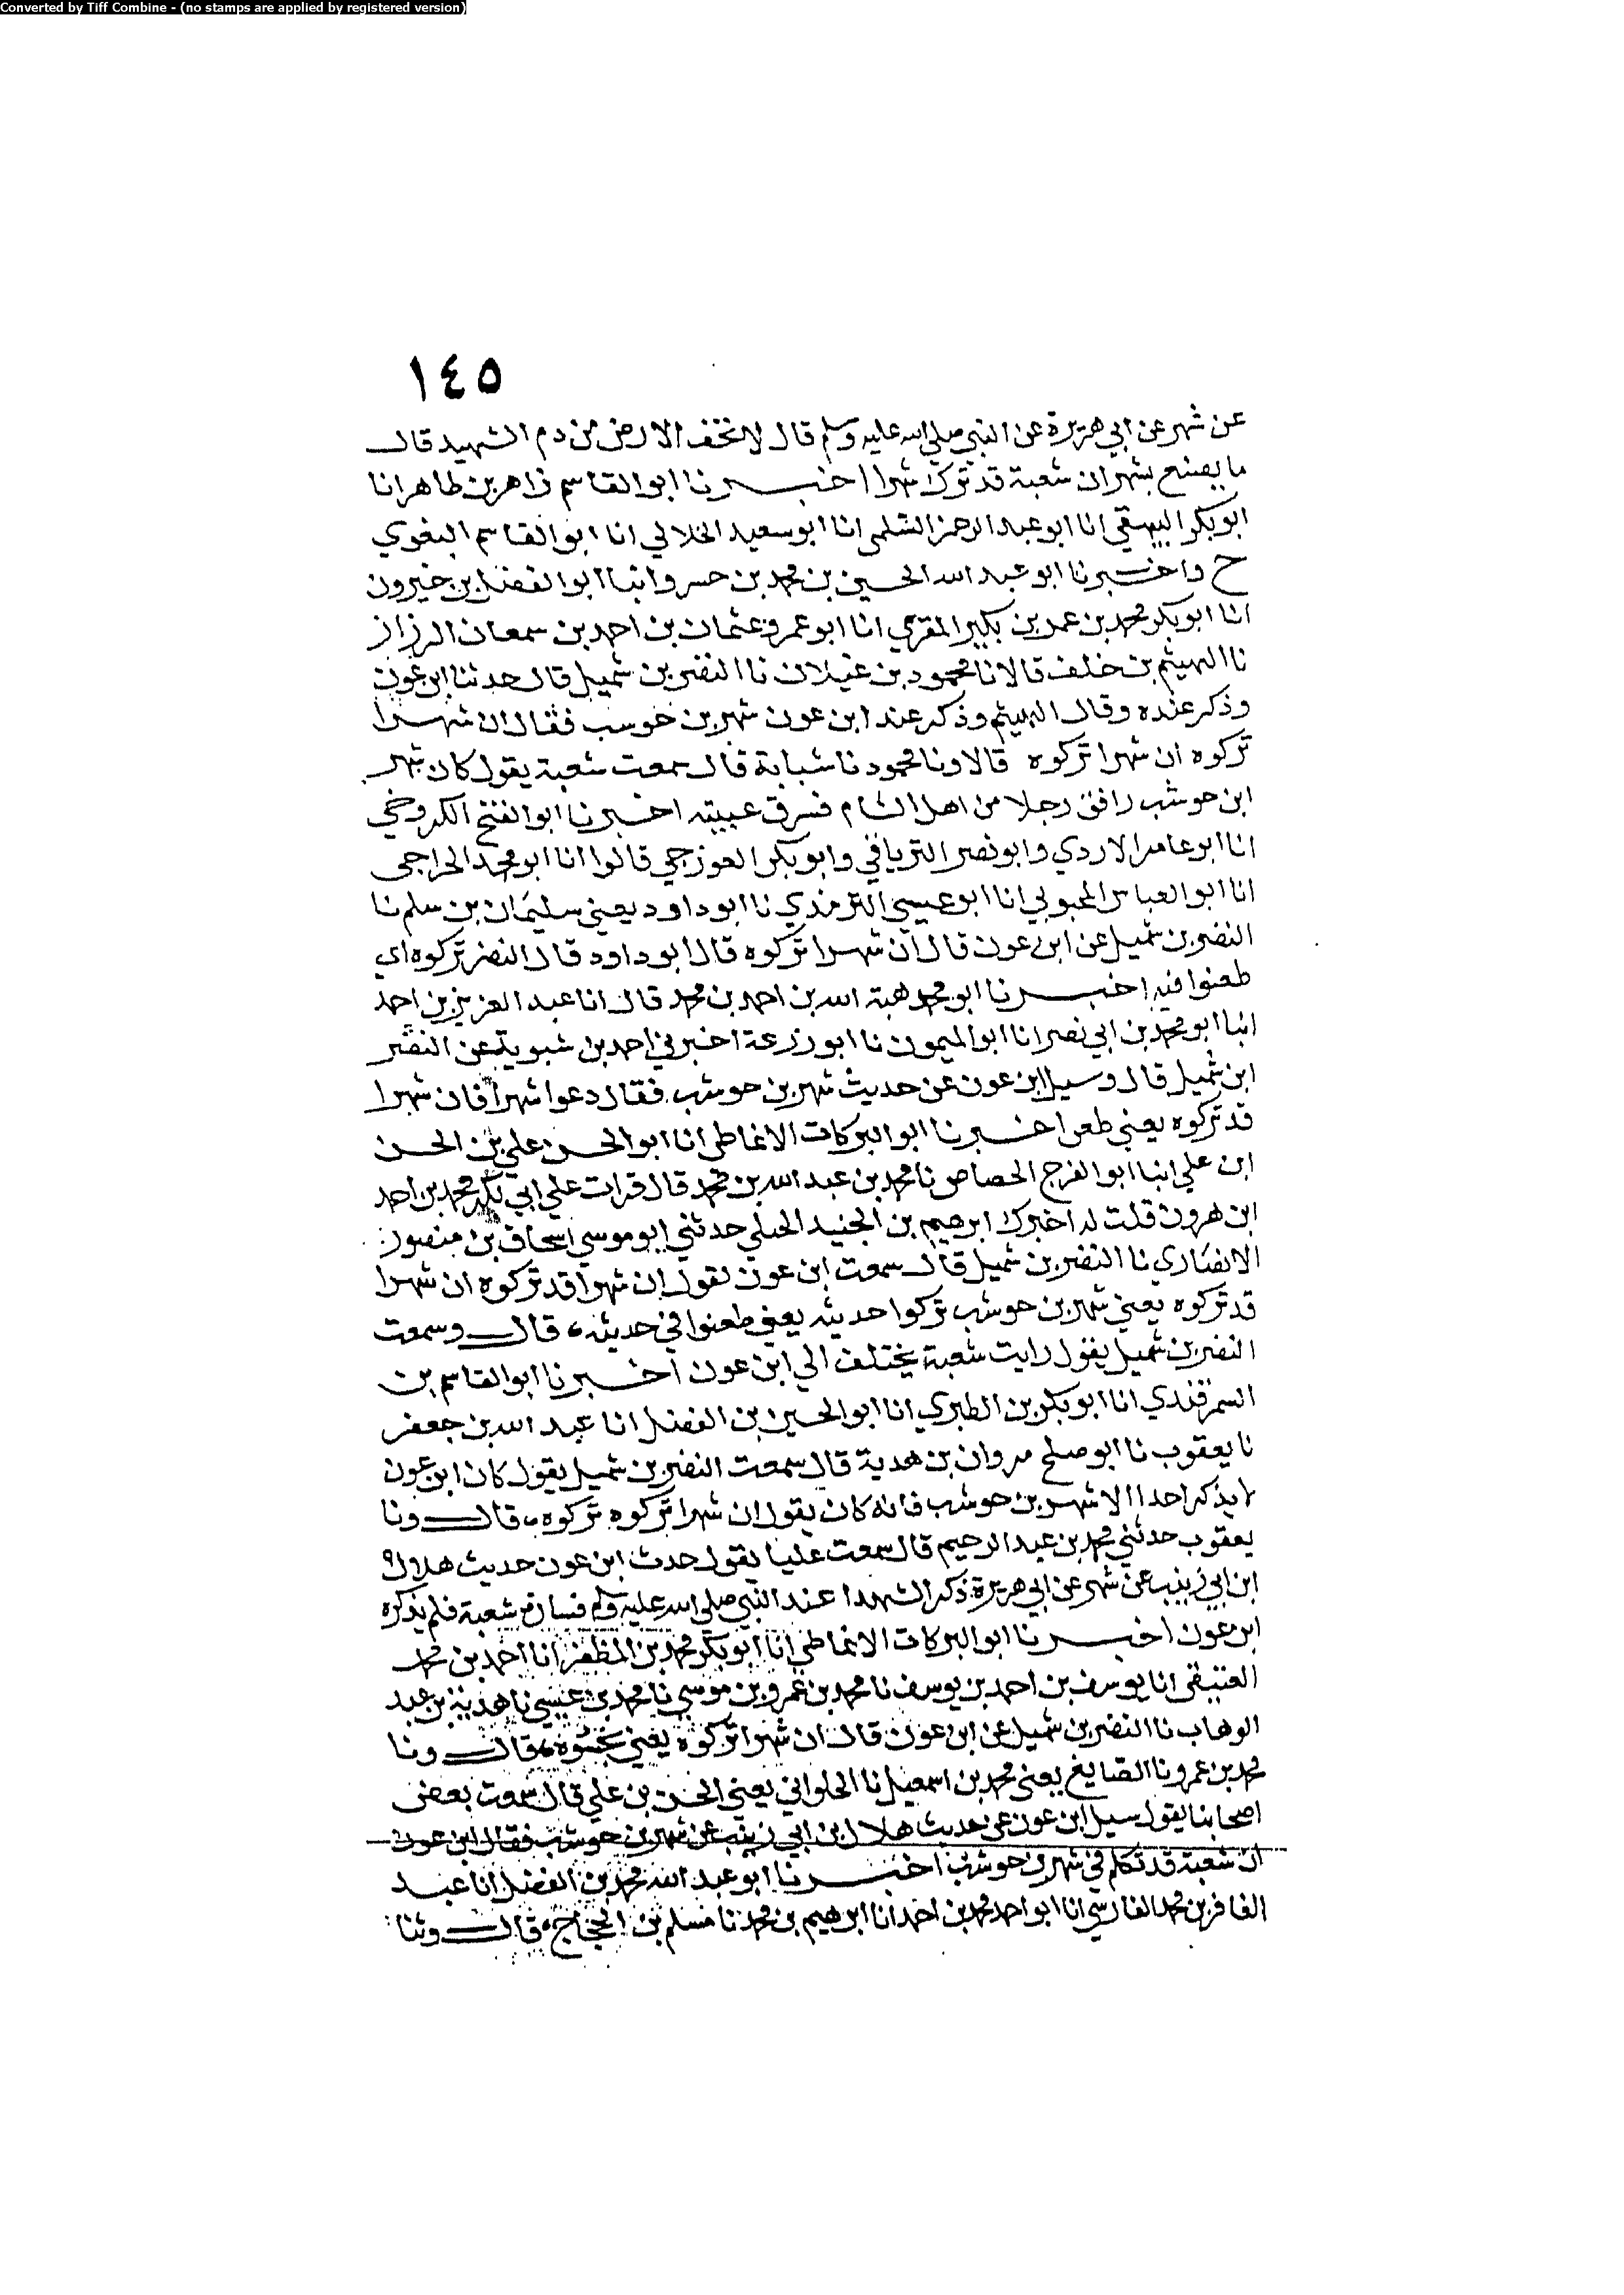 Converted by Tiff Combine - (no stamps are applied by registered version)
١٤٥
عن شهر عن ابي هريرة عن النبي صلى الله عليه وسلم قال لا تجف الارض من دم الشهيد قال
ما يصنع بشهر ان شعبة قد ترك شهرا اخبرنا ابو القاسم زاهر بن طاهر انا
ابو بكر البيهقي انا ابو عبد الرحمن السلمي انا ابو سعيد الخلالي انا ابو القاسم البغوي
ح واخبرنا ابو عبد الله الحسين بن محمد بن خسرو انبا ابو الفضل بن خيرون
انا ابو بكر محمد بن عمر بن بكير المقري انا ابو عمرو عثمان بن احمد بن سمعان الرزاز
نا الهيثم بن خلف قالا نا محمود بن غيلان نا النضر بن شميل قال حدثنا ابن عون
وذكر عنده وقال الهيثم وذكر عند ابن عون شهر بن حوسب فقال ان شهرا
تركوه ان شهرا تركوه قالا ونا محمود نا شبابة قال سمعت شعبة يقول كان شهر
ابن حوشب رافق رجلا من اهل الشام فسرق عيبته اخبرنا ابو الفتح الكروخي
انا ابو عامر الازدي وابو نصر الترياقي وابو بكر الغورجي قالوا انا ابو محمد الجراحي
انا ابو العباس المحبوبي انا ابو عيسى الترمذي نا ابو داود يعني سليمان بن سلم نا
النضر بن شميل عن ابن عون قال ان شهرا تركوه قال ابو داود قال النضر تركوه اي
طعنوا فيه اخبرنا ابو محمد هبة الله بن احمد بن محمد قال انا عبد العزيز بن احمد
انبا ابو محمد بن ابي نصر انا ابو الميمون نا ابو زرعة اخبرني احمد بن شبويه عن النضر
ابن شميل قال وسيل ابن عون عن حديث شهر بن حوشب فقال دعوا شهرا فان شهرا
قد تركوه يعني طعن اخبرنا ابو البركات الانماطي انا ابو الحسن علي بن الحسن
ابن علي انبا ابو الفرج الحصاص نا محمد بن عبد الله بن محمد قال قرات علي ابي بكر محمد بن احمد
ابن هرون قلت له اخبرك ابرهيم بن الجنيد الختلي حدثني ابو موسي اسحاق بن منصور
الانصاري نا النضر بن شميل قال سمعت ابن عون يقول ان شهرا قد تركوه ان شهرا
قد تركوه يعني شهر بن حوشب تركوا حديثه يعني طعنوا في حديثه، قال وسمعت
النضر بن شميل يقول رايت شعبة يختلف الي ابن عون اخبرنا ابو القاسم بن
السمرقندي انا ابو بكر بن الطبري انا ابو الحسين بن الفضل انا عبد الله بن جعفر
نا يعقوب نا ابو صلح مروان بن هدية قال سمعت النضر بن شميل يقول كان ابن عون
لا يذكر احدا الا شهر بن حوشب فانه كان يقول ان شهرا تركوه تركوه، قال ونا
يعقوب حدثني محمد بن عبد الرحيم قال سمعت عليا يقول حدث ابن عون حديث هلال
ابن ابي زينب عن شهر عن ابي هريرة ذكر الشهدا عند النبي صلى الله عليه وسلم شعبة فلم يذكره
ابن عون اخبرنا ابو البركات الانماطي انا ابو بكر محمد بن المظفر انا احمد بن محمد
العتيقي انا يوسف بن احمد بن يوسف نا محمد بن عمرو بن موسي نا محمد بن عيسي نا هدية بن عبد
الوهاب نا النضر بن شميل عن ابن عون قال ان شهرا تركوه يعني قال ونا
محمد بن عمرو نا الصايغ يعني محمد بن اسمعيل نا الحلواني يعني الحسن بن علي قال سمعت بعض
اصحابنا يقول سيل ابن عون عن حديث هلال بن ابي زينب عن شهر بن حوشب فقال ابن عون
ان شعبة قد تكلم في شهر بن حوشب اخبرنا ابو عبد الله محمد بن الفضل انا عبد
الغافر بن محمد الفارسي انا ابو احمد محمد بن احمد انا ابرهيم بن محمد نا مسلم بن الحجاج، قال وثنا